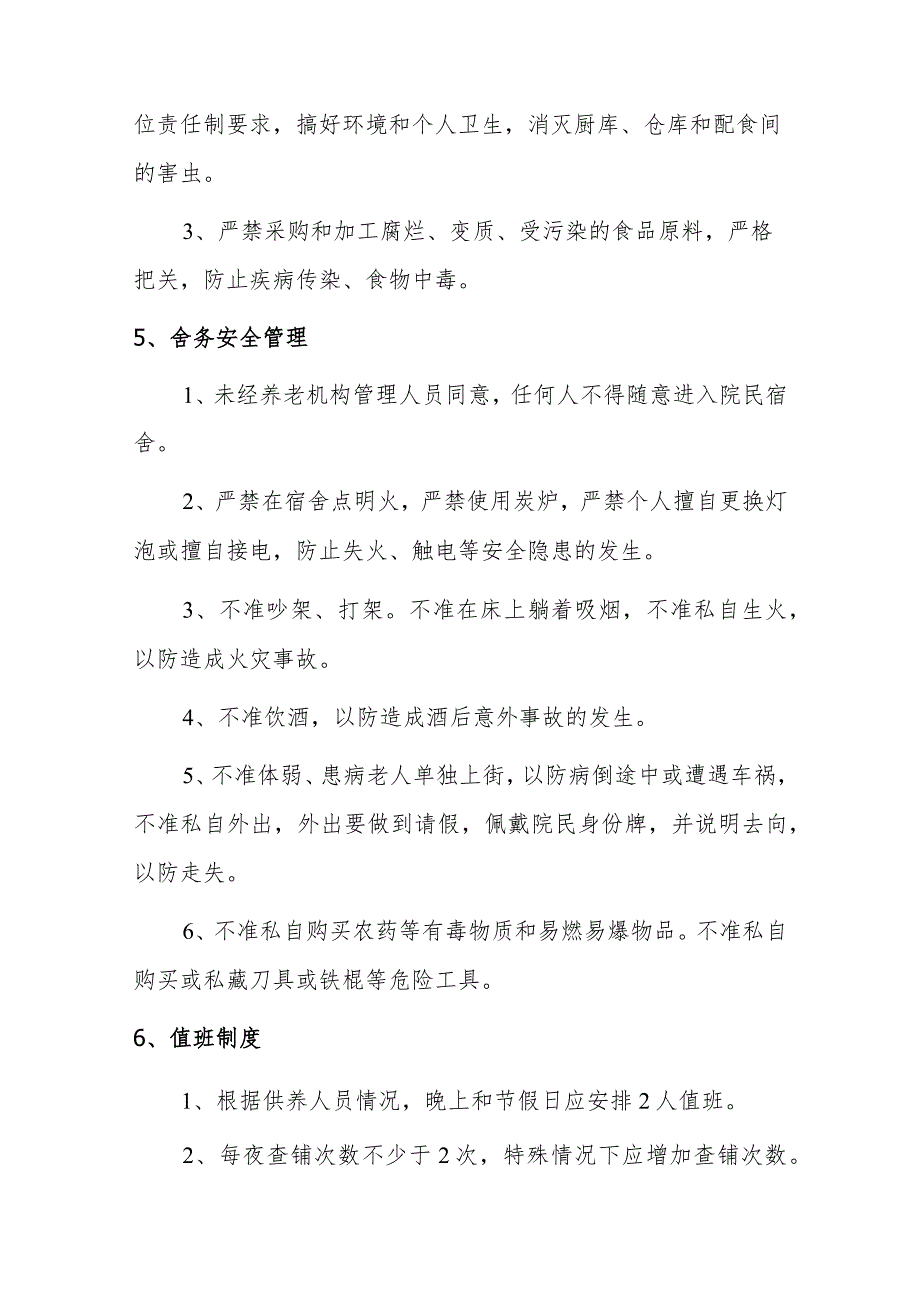 位责任制要求，搞好环境和个人卫生，消灭厨库、仓库和配食间
的害虫。
3、严禁采购和加工腐烂、变质、受污染的食品原料，严格
把关，防止疾病传染、食物中毒。
5、舍务安全管理
1、未经养老机构管理人员同意，任何人不得随意进入院民宿
舍。
2、严禁在宿舍点明火，严禁使用炭炉，严禁个人擅自更换灯
泡或擅自接电，防止失火、触电等安全隐患的发生。
3、不准吵架、打架。不准在床上躺着吸烟，不准私自生火，
以防造成火灾事故。
4、不准饮酒，以防造成酒后意外事故的发生。
5、不准体弱、患病老人单独上街，以防病倒途中或遭遇车祸，
不准私自外出，外出要做到请假，佩戴院民身份牌，并说明去向，
以防走失。
6、不准私自购买农药等有毒物质和易燃易爆物品。不准私自
购买或私藏刀具或铁棍等危险工具。
6、值班制度
1、根据供养人员情况，晚上和节假日应安排2人值班。
2、每夜查铺次数不少于2次，特殊情况下应增加查铺次数。